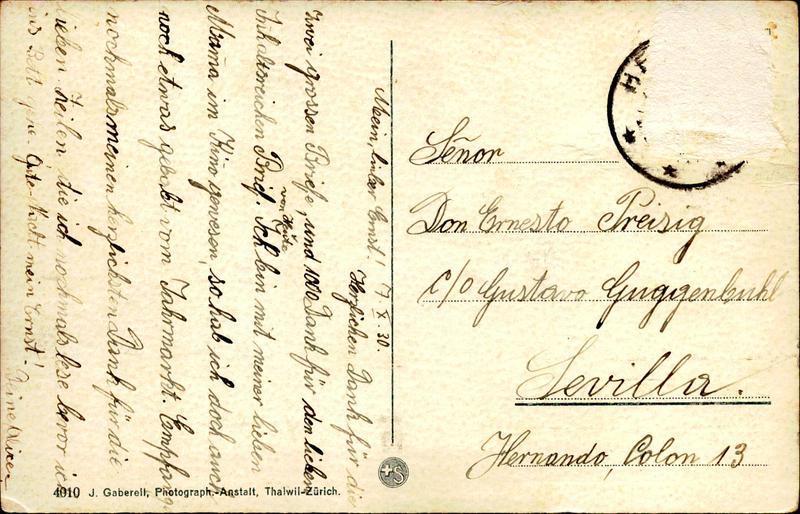 Mein, lieber Ernst! 7. X. 30.
Herzlichen Dank für die
zwei grossen Briefe, und 1000 Dank für den lieben
von Heute
Inhaltsreichen Brief. Ich bin mit meiner lieben
Mama im Kino gewesen, so hab ich doch auch
noch etwas gehabt vom Jahrmarkt. Empfang
nochmals meinen herzlichsten Dank für die
lieben Zeilen, die ich nochmals lese bevor ich
ins Bett gehe. Gute Nacht mein Ernst!
Señor
Don Ernesto Preisig
c/o Gustavo Guggenbuhl
Sevilla.
Hernando, Colon 13
4010 J. Gaberell, Photograph.-Anstalt, Thalwil-Zürich.
+S